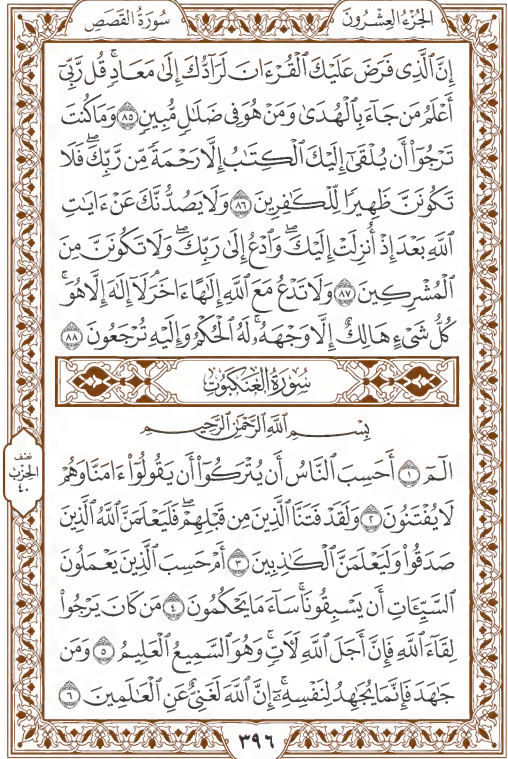 الجُزْءُ العِشْرُونَ
سُورَةُ القَصَصِ
إِنَّ ٱلَّذِى فَرَضَ عَلَيْكَ ٱلْقُرْءَانَ لَرَآدُّكَ إِلَىٰ مَعَادٍۚ قُل رَّبِّىٓ
أَعْلَمُ مَن جَآءَ بِٱلْهُدَىٰ وَمَنْ هُوَ فِى ضَلَٰلٍ مُّبِينٍ ٨٥ وَمَا كُنتَ
تَرْجُوٓاْ أَن يُلْقَىٰٓ إِلَيْكَ ٱلْكِتَٰبُ إِلَّا رَحْمَةً مِّن رَّبِّكَۖ فَلَا
تَكُونَنَّ ظَهِيرًا لِّلْكَٰفِرِينَ ٨٦ وَلَا يَصُدُّنَّكَ عَنْ ءَايَٰتِ
ٱللَّهِ بَعْدَ إِذْ أُنزِلَتْ إِلَيْكَۖ وَٱدْعُ إِلَىٰ رَبِّكَۖ وَلَا تَكُونَنَّ مِنَ
ٱلْمُشْرِكِينَ ٨٧ وَلَا تَدْعُ مَعَ ٱللَّهِ إِلَٰهًا ءَاخَرَۘ لَآ إِلَٰهَ إِلَّا هُوَۚ
كُلُّ شَىْءٍ هَالِكٌ إِلَّا وَجْهَهُۥۚ لَهُ ٱلْحُكْمُ وَإِلَيْهِ تُرْجَعُونَ ٨٨
سُورَةُ العَنكَبُوتِ
بِسْمِ ٱللَّهِ ٱلرَّحْمَٰنِ ٱلرَّحِيمِ
الٓمٓ ١ أَحَسِبَ ٱلنَّاسُ أَن يُتْرَكُوٓاْ أَن يَقُولُوٓاْ ءَامَنَّا وَهُمْ
لَا يُفْتَنُونَ ٢ وَلَقَدْ فَتَنَّا ٱلَّذِينَ مِن قَبْلِهِمْۖ فَلَيَعْلَمَنَّ ٱللَّهُ ٱلَّذِينَ
صَدَقُواْ وَلَيَعْلَمَنَّ ٱلْكَٰذِبِينَ ٣ أَمْ حَسِبَ ٱلَّذِينَ يَعْمَلُونَ
ٱلسَّيِّـَٔاتِ أَن يَسْبِقُونَاۚ سَآءَ مَا يَحْكُمُونَ ٤ مَن كَانَ يَرْجُواْ
لِقَآءَ ٱللَّهِ فَإِنَّ أَجَلَ ٱللَّهِ لَأٓتٍۚ وَهُوَ ٱلسَّمِيعُ ٱلْعَلِيمُ ٥ وَمَن
جَٰهَدَ فَإِنَّمَا يُجَٰهِدُ لِنَفْسِهِۦٓۚ إِنَّ ٱللَّهَ لَغَنِىٌّ عَنِ ٱلْعَٰلَمِينَ ٦
نصف
الحزب
٤٠
٣٩٦